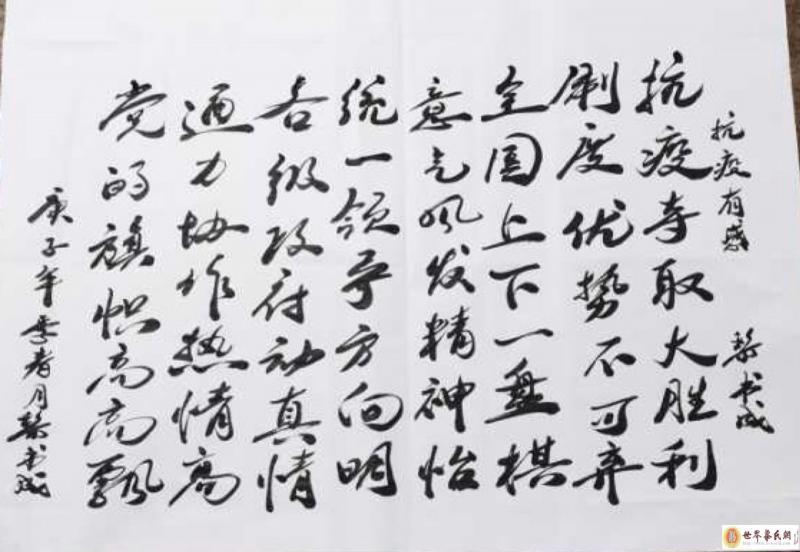 抗疫有感 蔡书成
抗疫夺取大胜利
制度优势不可弃
全国上下一盘棋
意气风发精神怡
统一领导方向明
各级政府动真情
通力协作热情高
党的旗帜高高飘
庚子年季春月蔡书成
世界蔡氏網